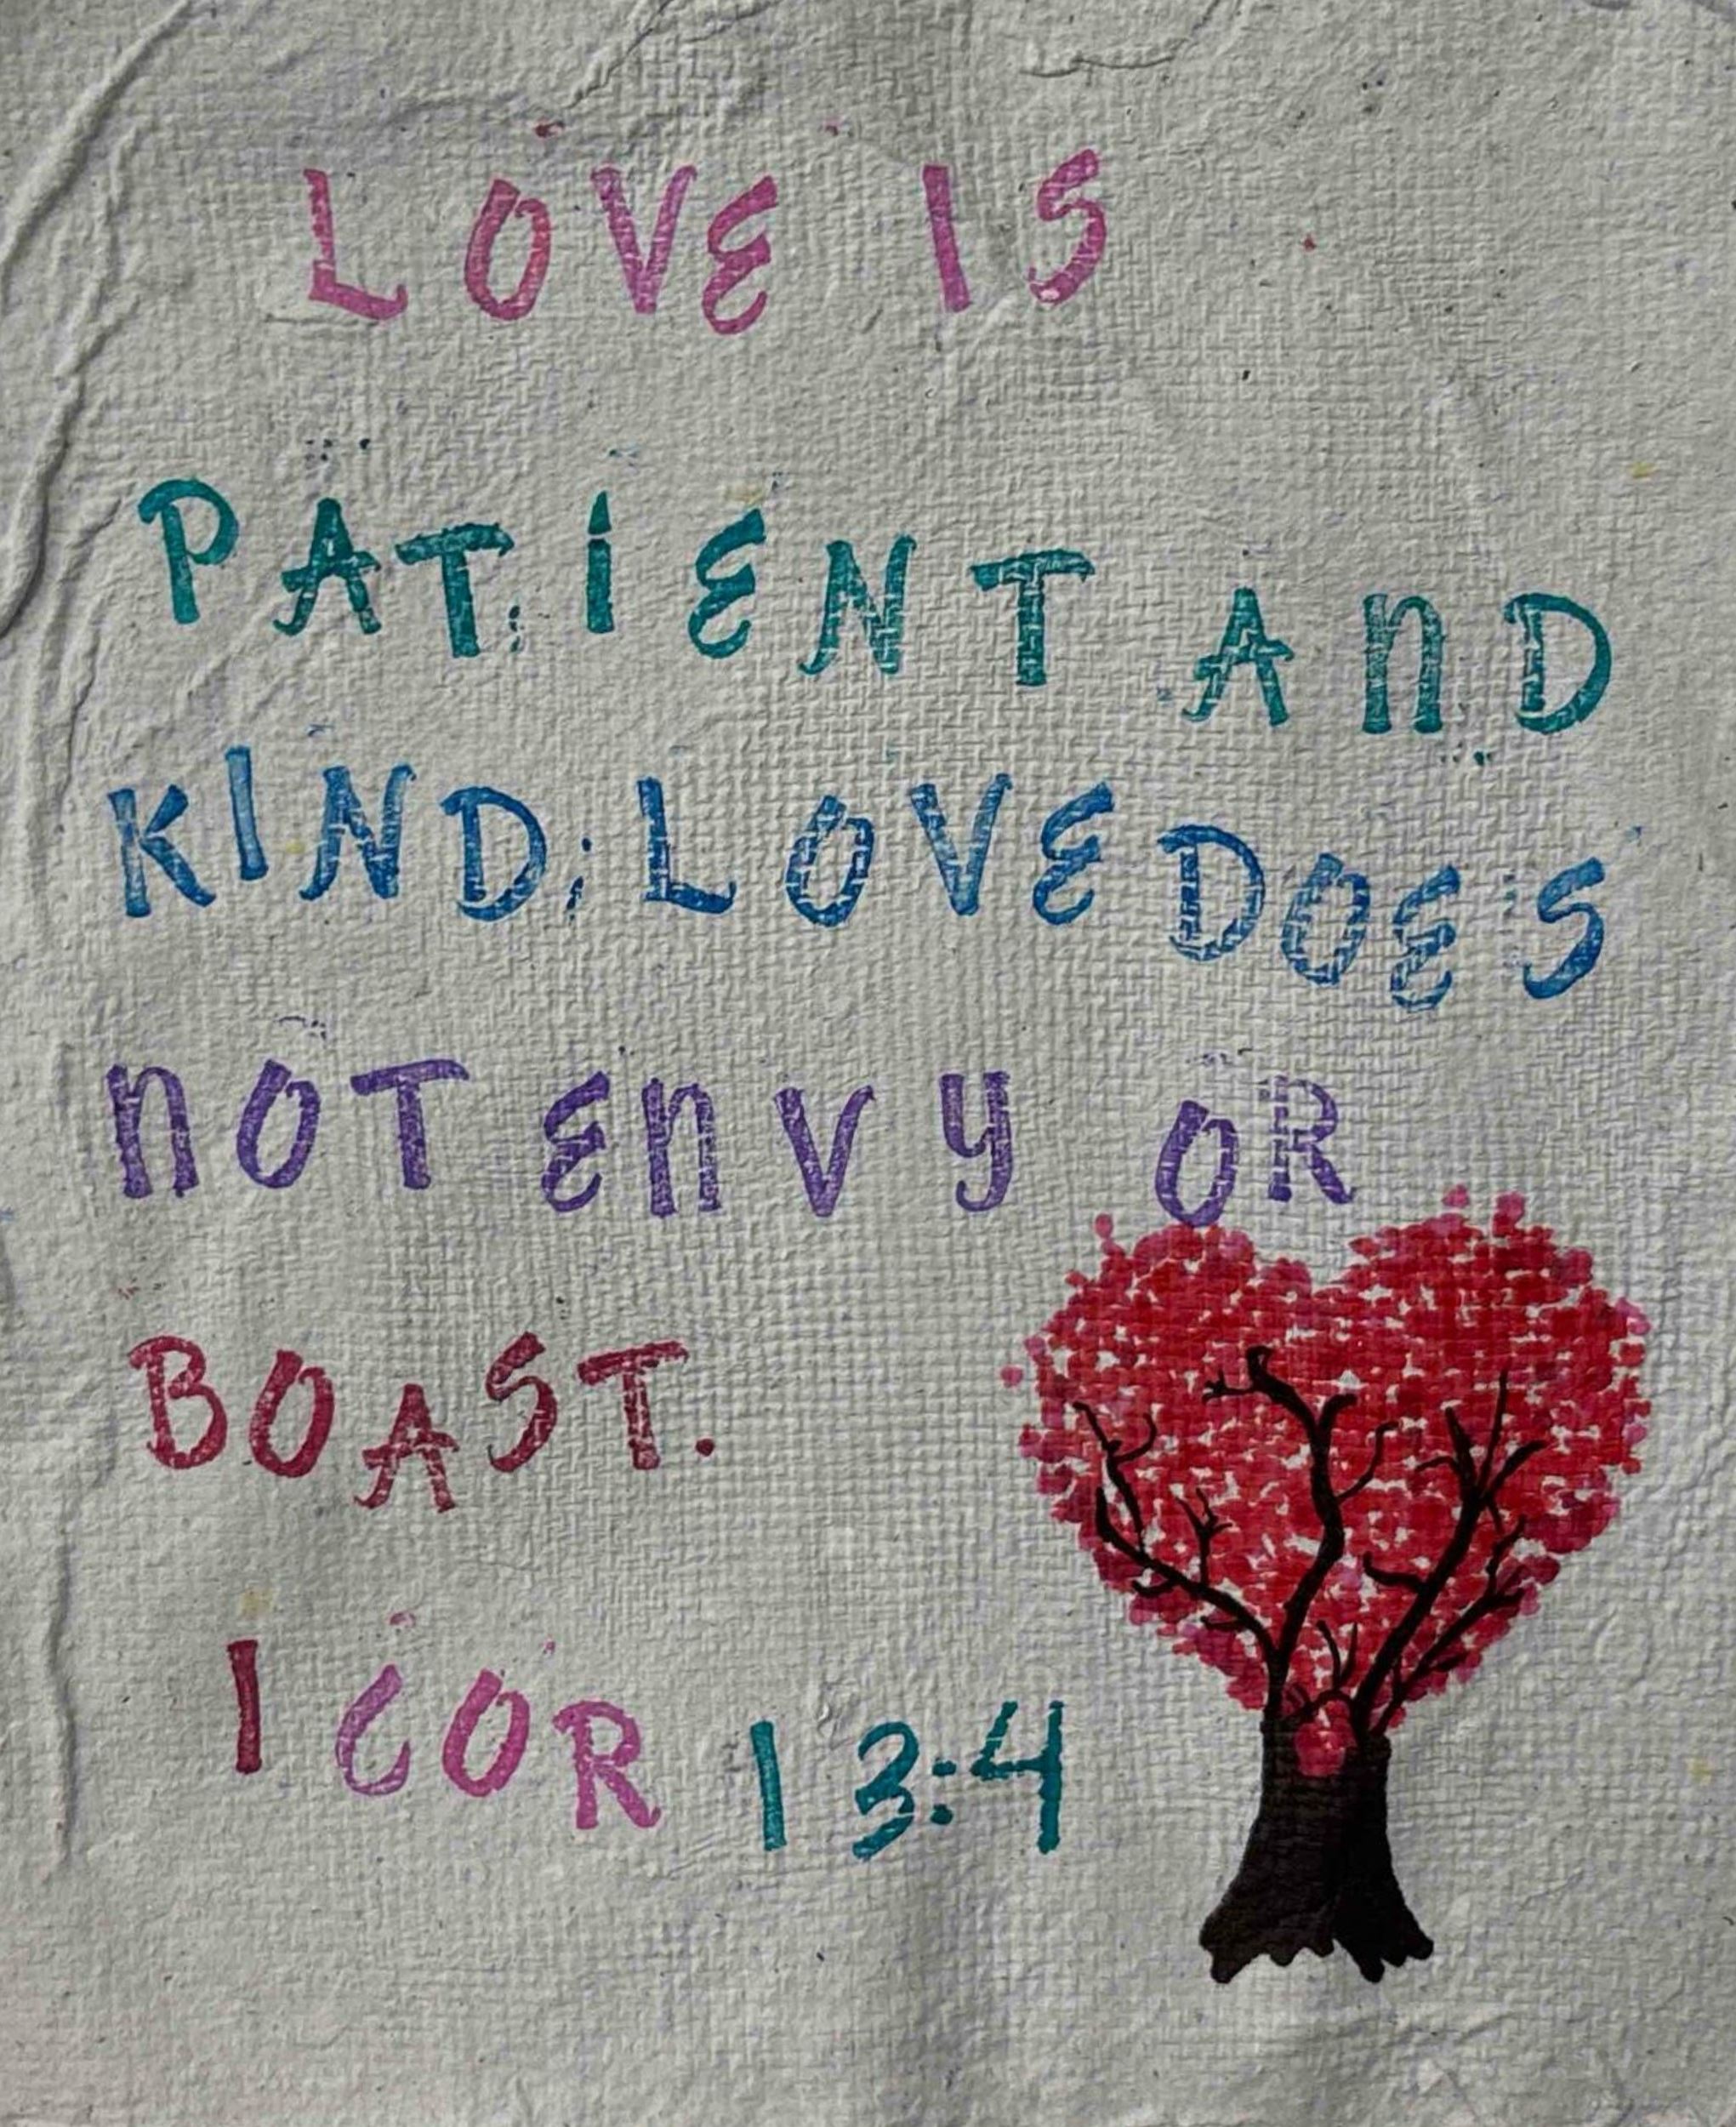 LOVE IS
PATIENT AND
KIND; LOVE DOES
NOT ENVY OR
BOAST.
1 COR 13:4